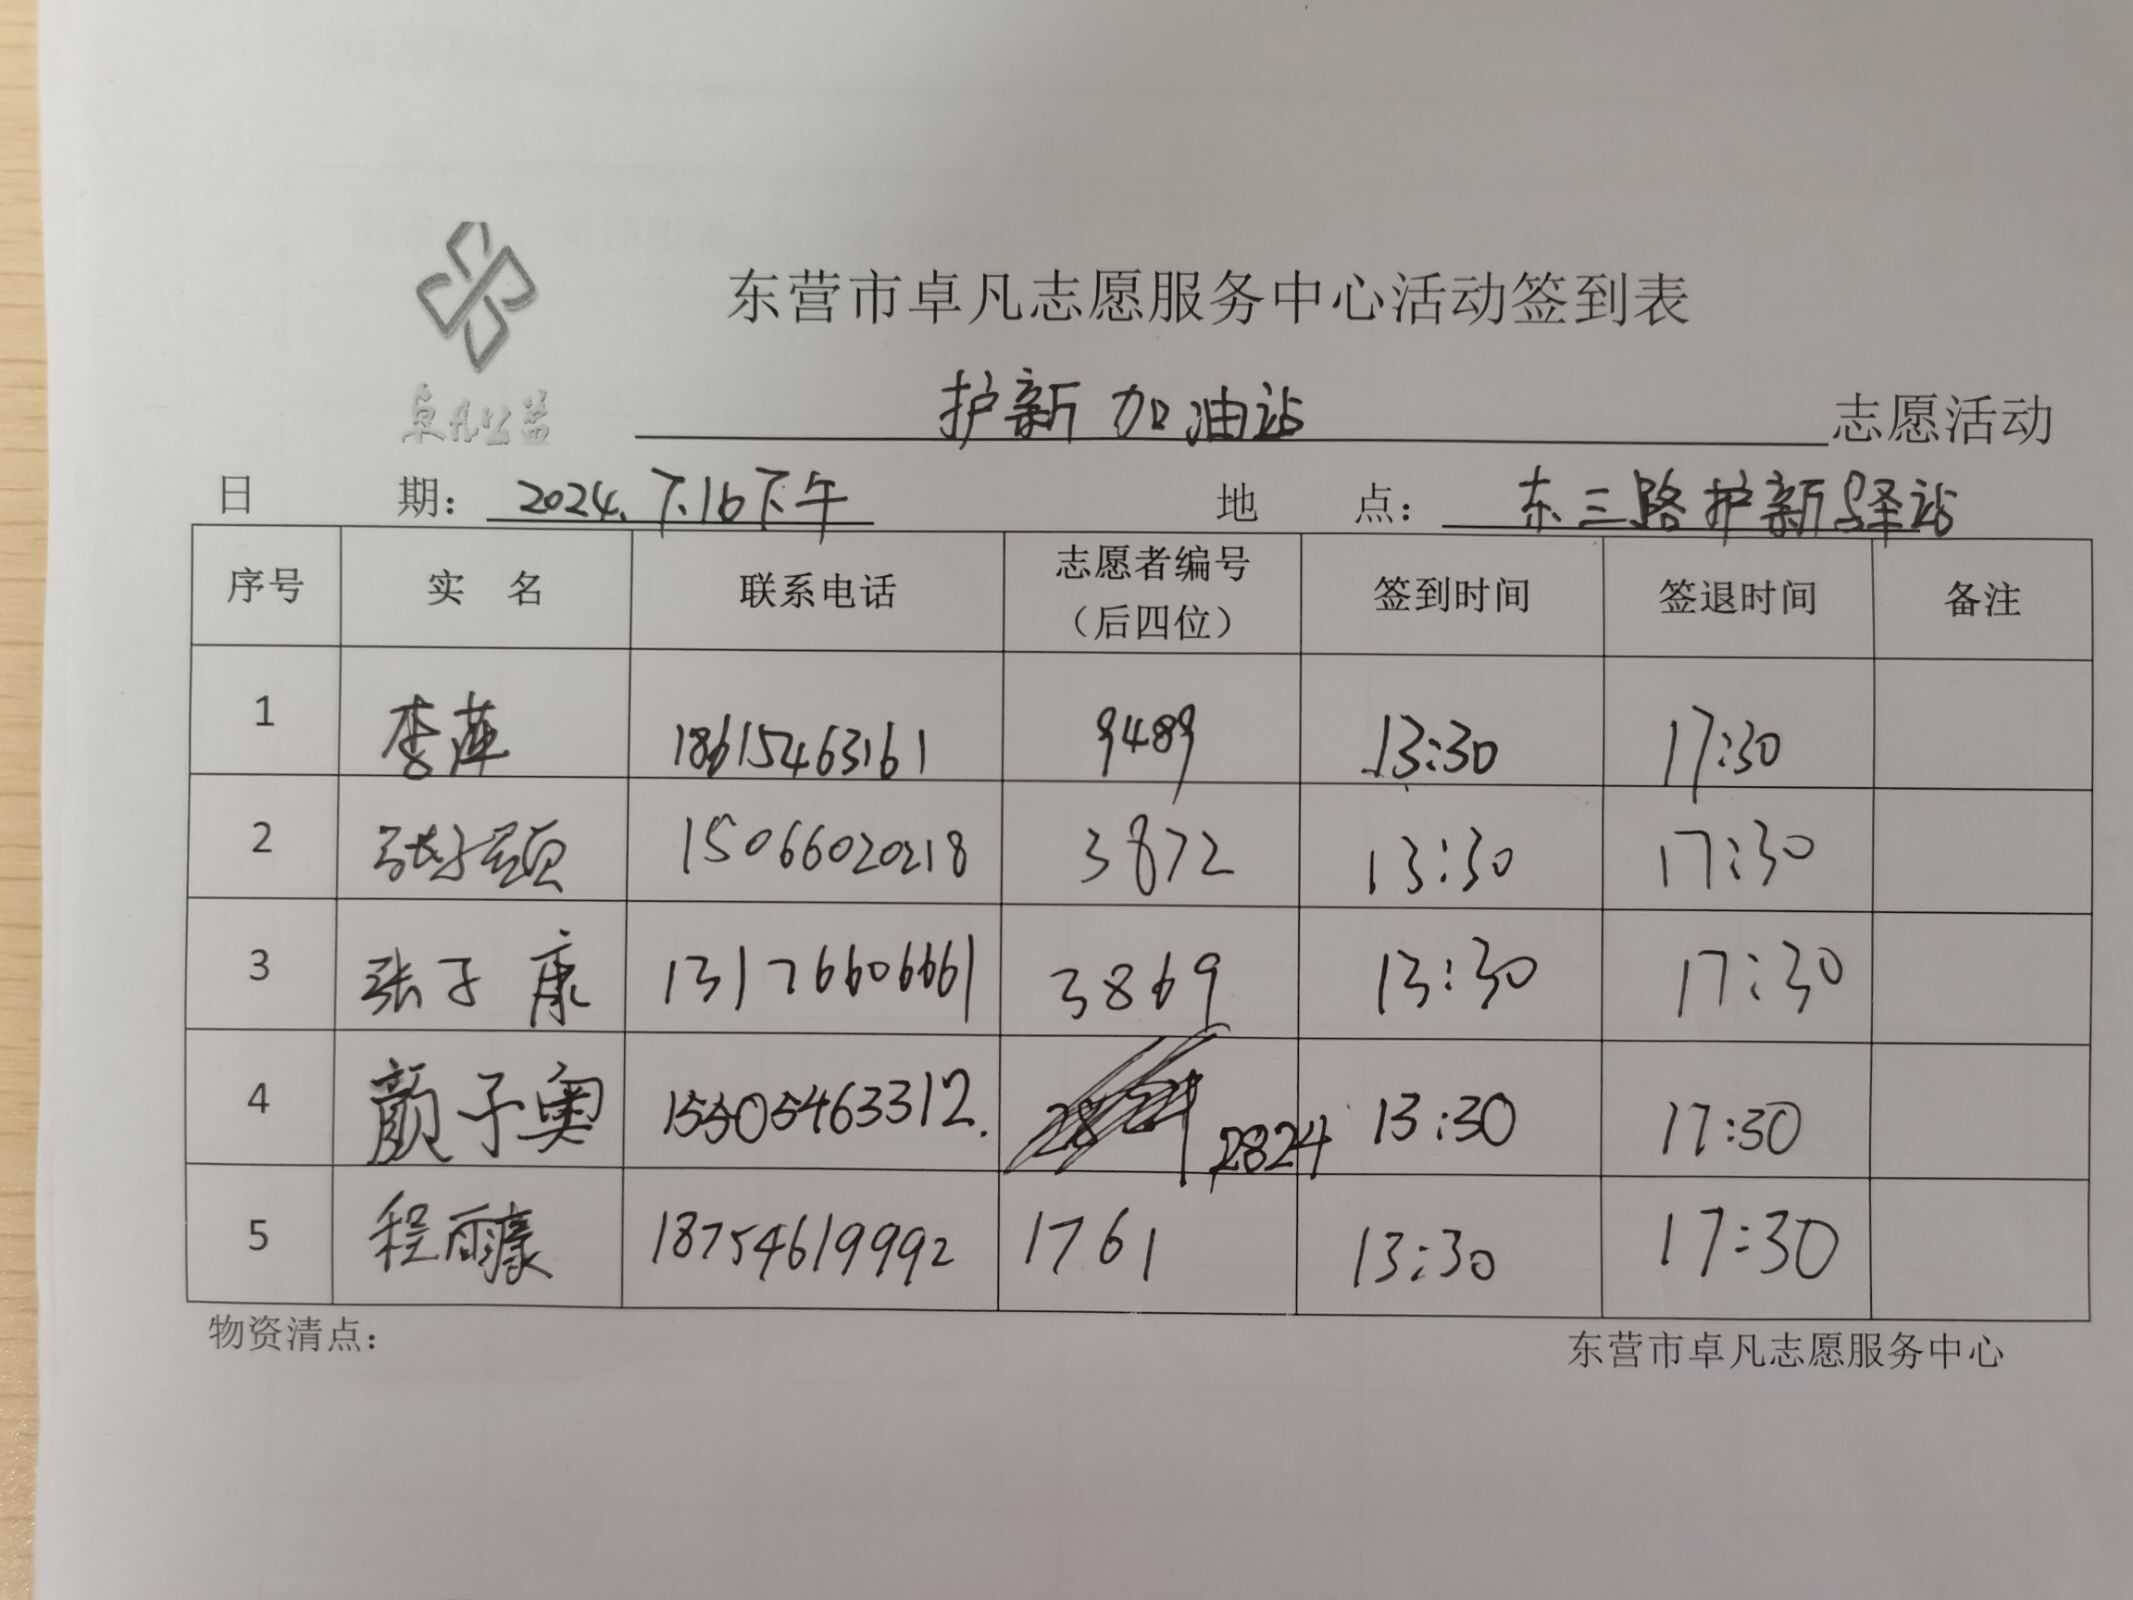 东营市卓凡志愿服务中心活动签到表
卓凡公益
护新加油站 志愿活动
日 期： 2024.7.16下午 地 点： 东三路护新驿站
序号 实 名 联系电话 志愿者编号（后四位） 签到时间 签退时间 备注
1 李萍 18615463161 9489 13:30 17:30
2 张子颐 15066020218 3872 13:30 17:30
3 张子康 13176606661 3869 13:30 17:30
4 颜子奥 15505463312. 2824 13:30 17:30
5 程雨 18754619992 1761 13:30 17:30
物资清点：
东营市卓凡志愿服务中心